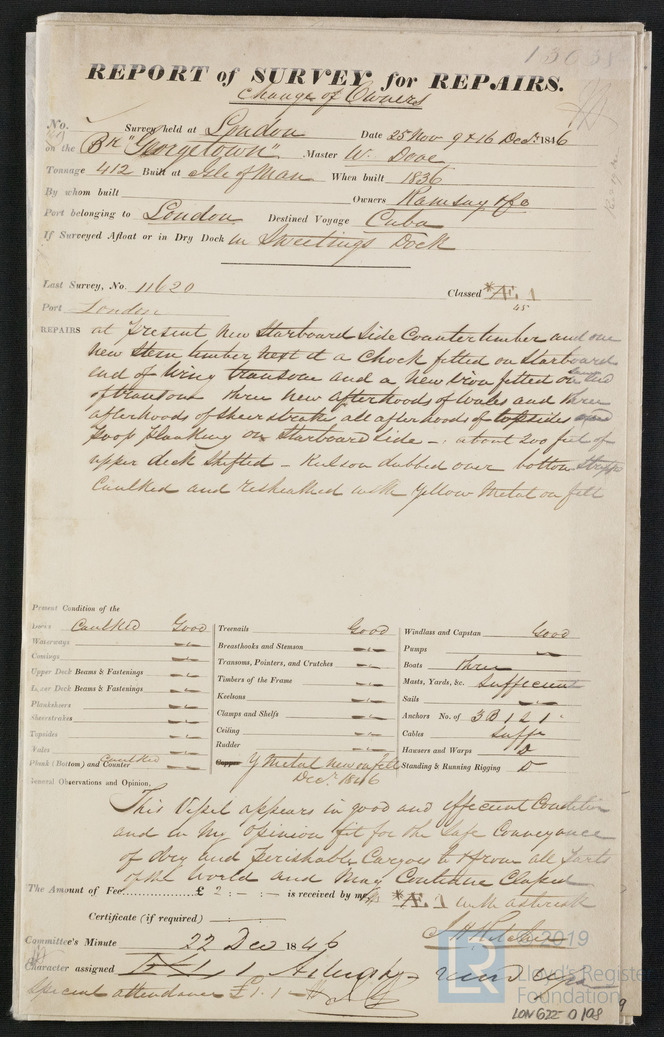 13631
REPORT of SURVEY for REPAIRS.
Change of Owners
No. Survey held at London Date 25 Nov 9 & 16 Decr. 1846
on the Bk "Georgetown" Master W. Dove
Tonnage 412 Built at Isle of Man When built 1836
By whom built Owners Ramsay & Co
Port belonging to London Destined Voyage Cuba
If Surveyed Afloat or in Dry Dock in Sweetings Dock
Last Survey, No. 11620 Classed *Æ 1
Port London 45
REPAIRS at present New Starboard Side Counter timber and one
new Stern timber next it a Chock fitted on Starboard
end of Wing transom and a New Iron fitted on
of transom three new afterhoods of Wales and three
afterhoods of Sheerstrake all afterhoods of topsides
Poop planking on Starboard Side - about 200 feet of
upper deck Shifted - Keelson dubbed over bottom
Caulked and resheathed with Yellow Metal on felt
Present Condition of the
Decks Caulked Good
Waterways
Comings
Upper Deck Beams & Fastenings
Lower Deck Beams & Fastenings
Plankshears
Sheerstrakes
Topsides
Wales
Plank (Bottom) and Counter Caulked
Treenails Good
Breasthooks and Stemson
Transoms, Pointers, and Crutches
Timbers of the Frame
Keelsons
Clamps and Shelfs
Ceiling
Rudder
Copper Y Metal new on felt
Decr. 1846
Windlass and Capstan Good
Pumps
Boats three
Masts, Yards, &c. Sufficient
Sails
Anchors No. of 3 B 1 2 1
Cables Sufft
Hawsers and Warps Do
Standing & Running Rigging Do
General Observations and Opinion.
This Vessel appears in good and efficient Condition
and in my opinion fit for the Safe Conveyance
of dry and Perishable Cargoes to & from all parts
of the World and May Continue Classed
The Amount of Fee £ 2 : - : - is received by me *Æ 1 with asterisk
Certificate (if required)
Committee's Minute 22 Dec 1846
Character assigned
Special attendance £1.1 -
2019
LR
Lloyd's Register
Foundation
LON622-0108